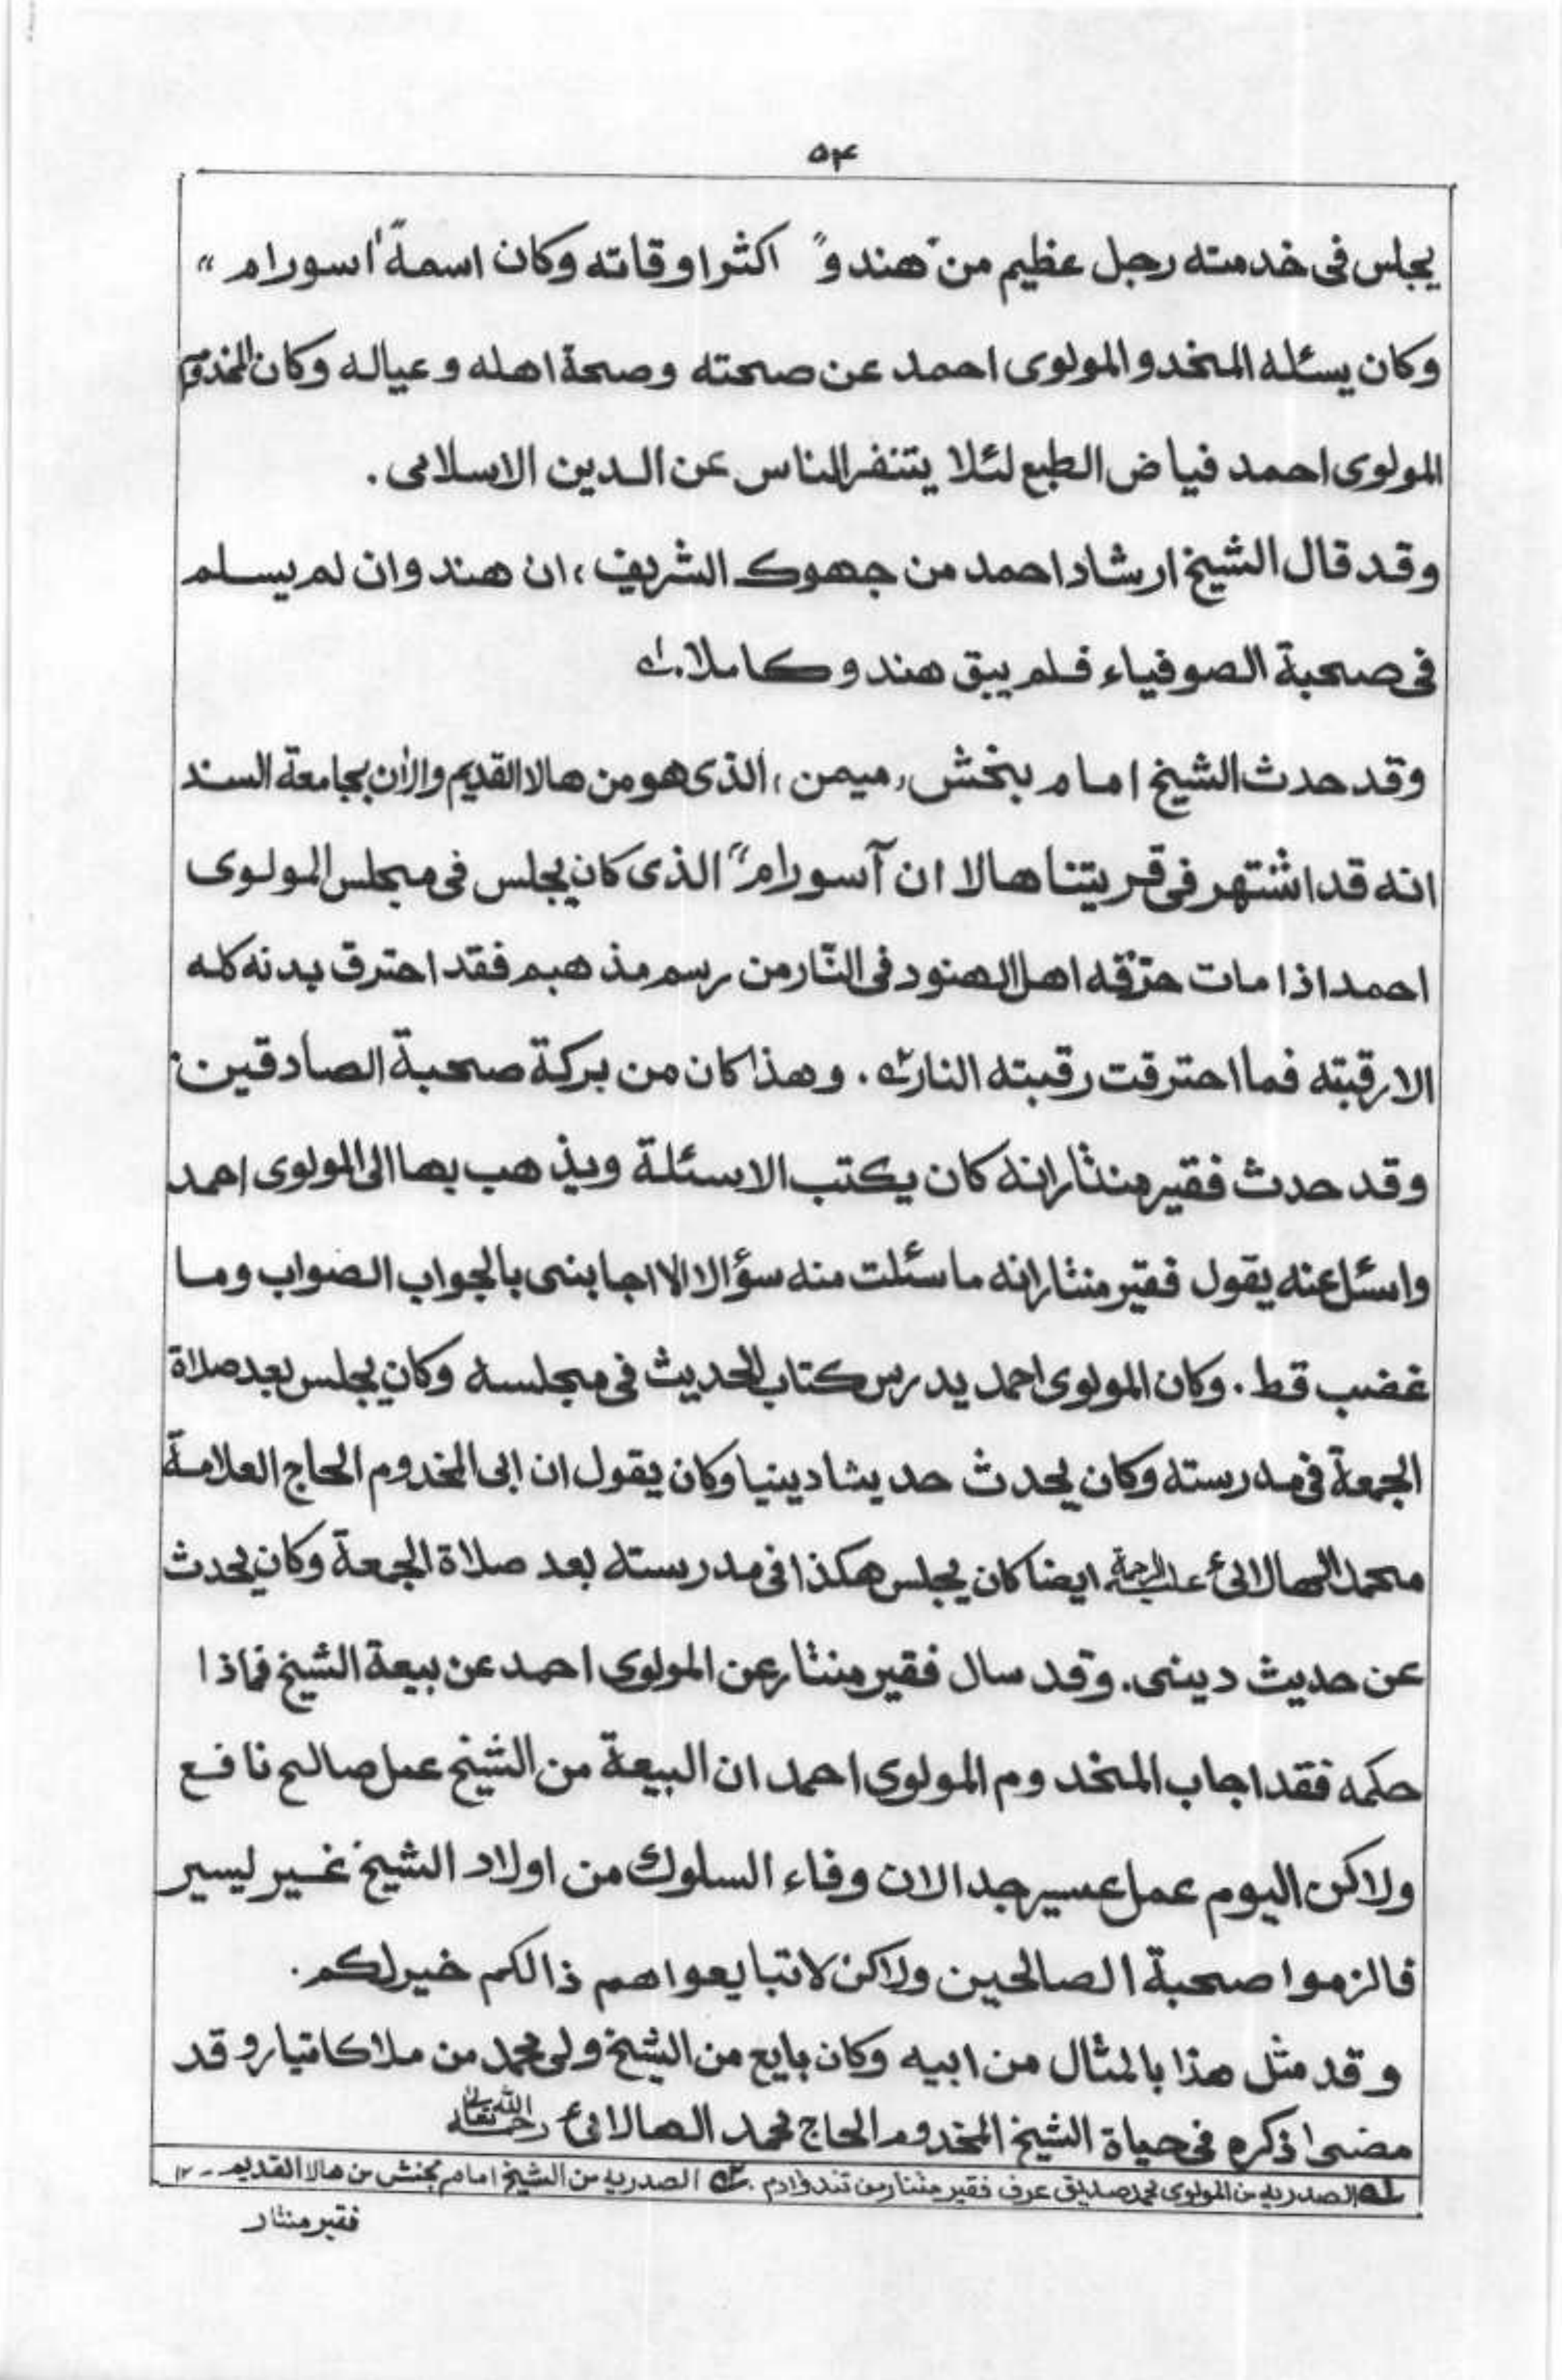 ۵۴
يجلس فى خدمته رجل عظيم من "هندو" اكثر اوقاته وكان اسمة "اسورام"
وكان يسئله المخدو المولوى احمد عن صحته وصحة اهله وعياله وكان المخدوم
المولوى احمد فياض الطبع لئلا يتنفر الناس عن الدين الاسلامى .
وقد قال الشيخ ارشاد احمد من جهوك الشريف ، ان هندو ان لم يسلم
فى صحبة الصوفياء فلم يبق هندو كاملا . له
وقد حدث الشيخ امام بنخش ، ميمن ، الذى هو من هالا القديم والآن بجامعة السند
انه قد اشتهر فى قريتنا هالا ان آسورام" الذى كان يجلس فى مجلس المولوى
احمد اذا مات حرّقه اهل الهنود فى النّار من رسم مذهبم فقد احترق بدنه كله
الا رقبته فما احترقت رقبته النار ۲ه . وهذا كان من بركة صحبة الصادقين :
وقد حدث فقير منثار انه كان يكتب الاسئلة ويذهب بها الى المولوى احمد
واسئل عنه يقول فقير منثار انه ما سئلت منه سؤالا الا اجابنى بالجواب الصواب وما
غضب قط . وكان المولوى احمد يدرس كتاب الحديث فى مجلسه وكان يجلس بعد صلاة
الجمعة فى مدرسته وكان يحدث حديثا دينيا وكان يقول ان ابى المخدوم الحاج العلامة
محمد الهالائى عليه الرحمة ايضا كان يجلس هكذا فى مدرسته بعد صلاة الجمعة وكان يحدث
عن حديث دينى . وقد سال فقير منثار عن المولوى احمد عن بيعة الشيخ فماذا
حكمه فقد اجاب المخدوم المولوى احمد ان البيعة من الشيخ عمل صالح نافع
ولاكن اليوم عمل عسير جدا لان وفاء السلوك من اولاد الشيخ غير يسير
فالزموا صحبة الصالحين ولاكن لا تبايعواهم ذالكم خير لكم .
وقد مثل هذا بالمثال من ابيه وكان بايع من الشيخ ولى محمد من ملاكاتيار وقد
مضى اذكره فى حياة الشيخ المخدوم الحاج محمد الهالائى رحمه الله تعالى
له الصدريه من المولوى محمد صديق عرف فقير منثار من تندوادم . ۲ه الصدريه من الشيخ امام بخنش من هالا القديم ۔ ۱۲
فقير منثار